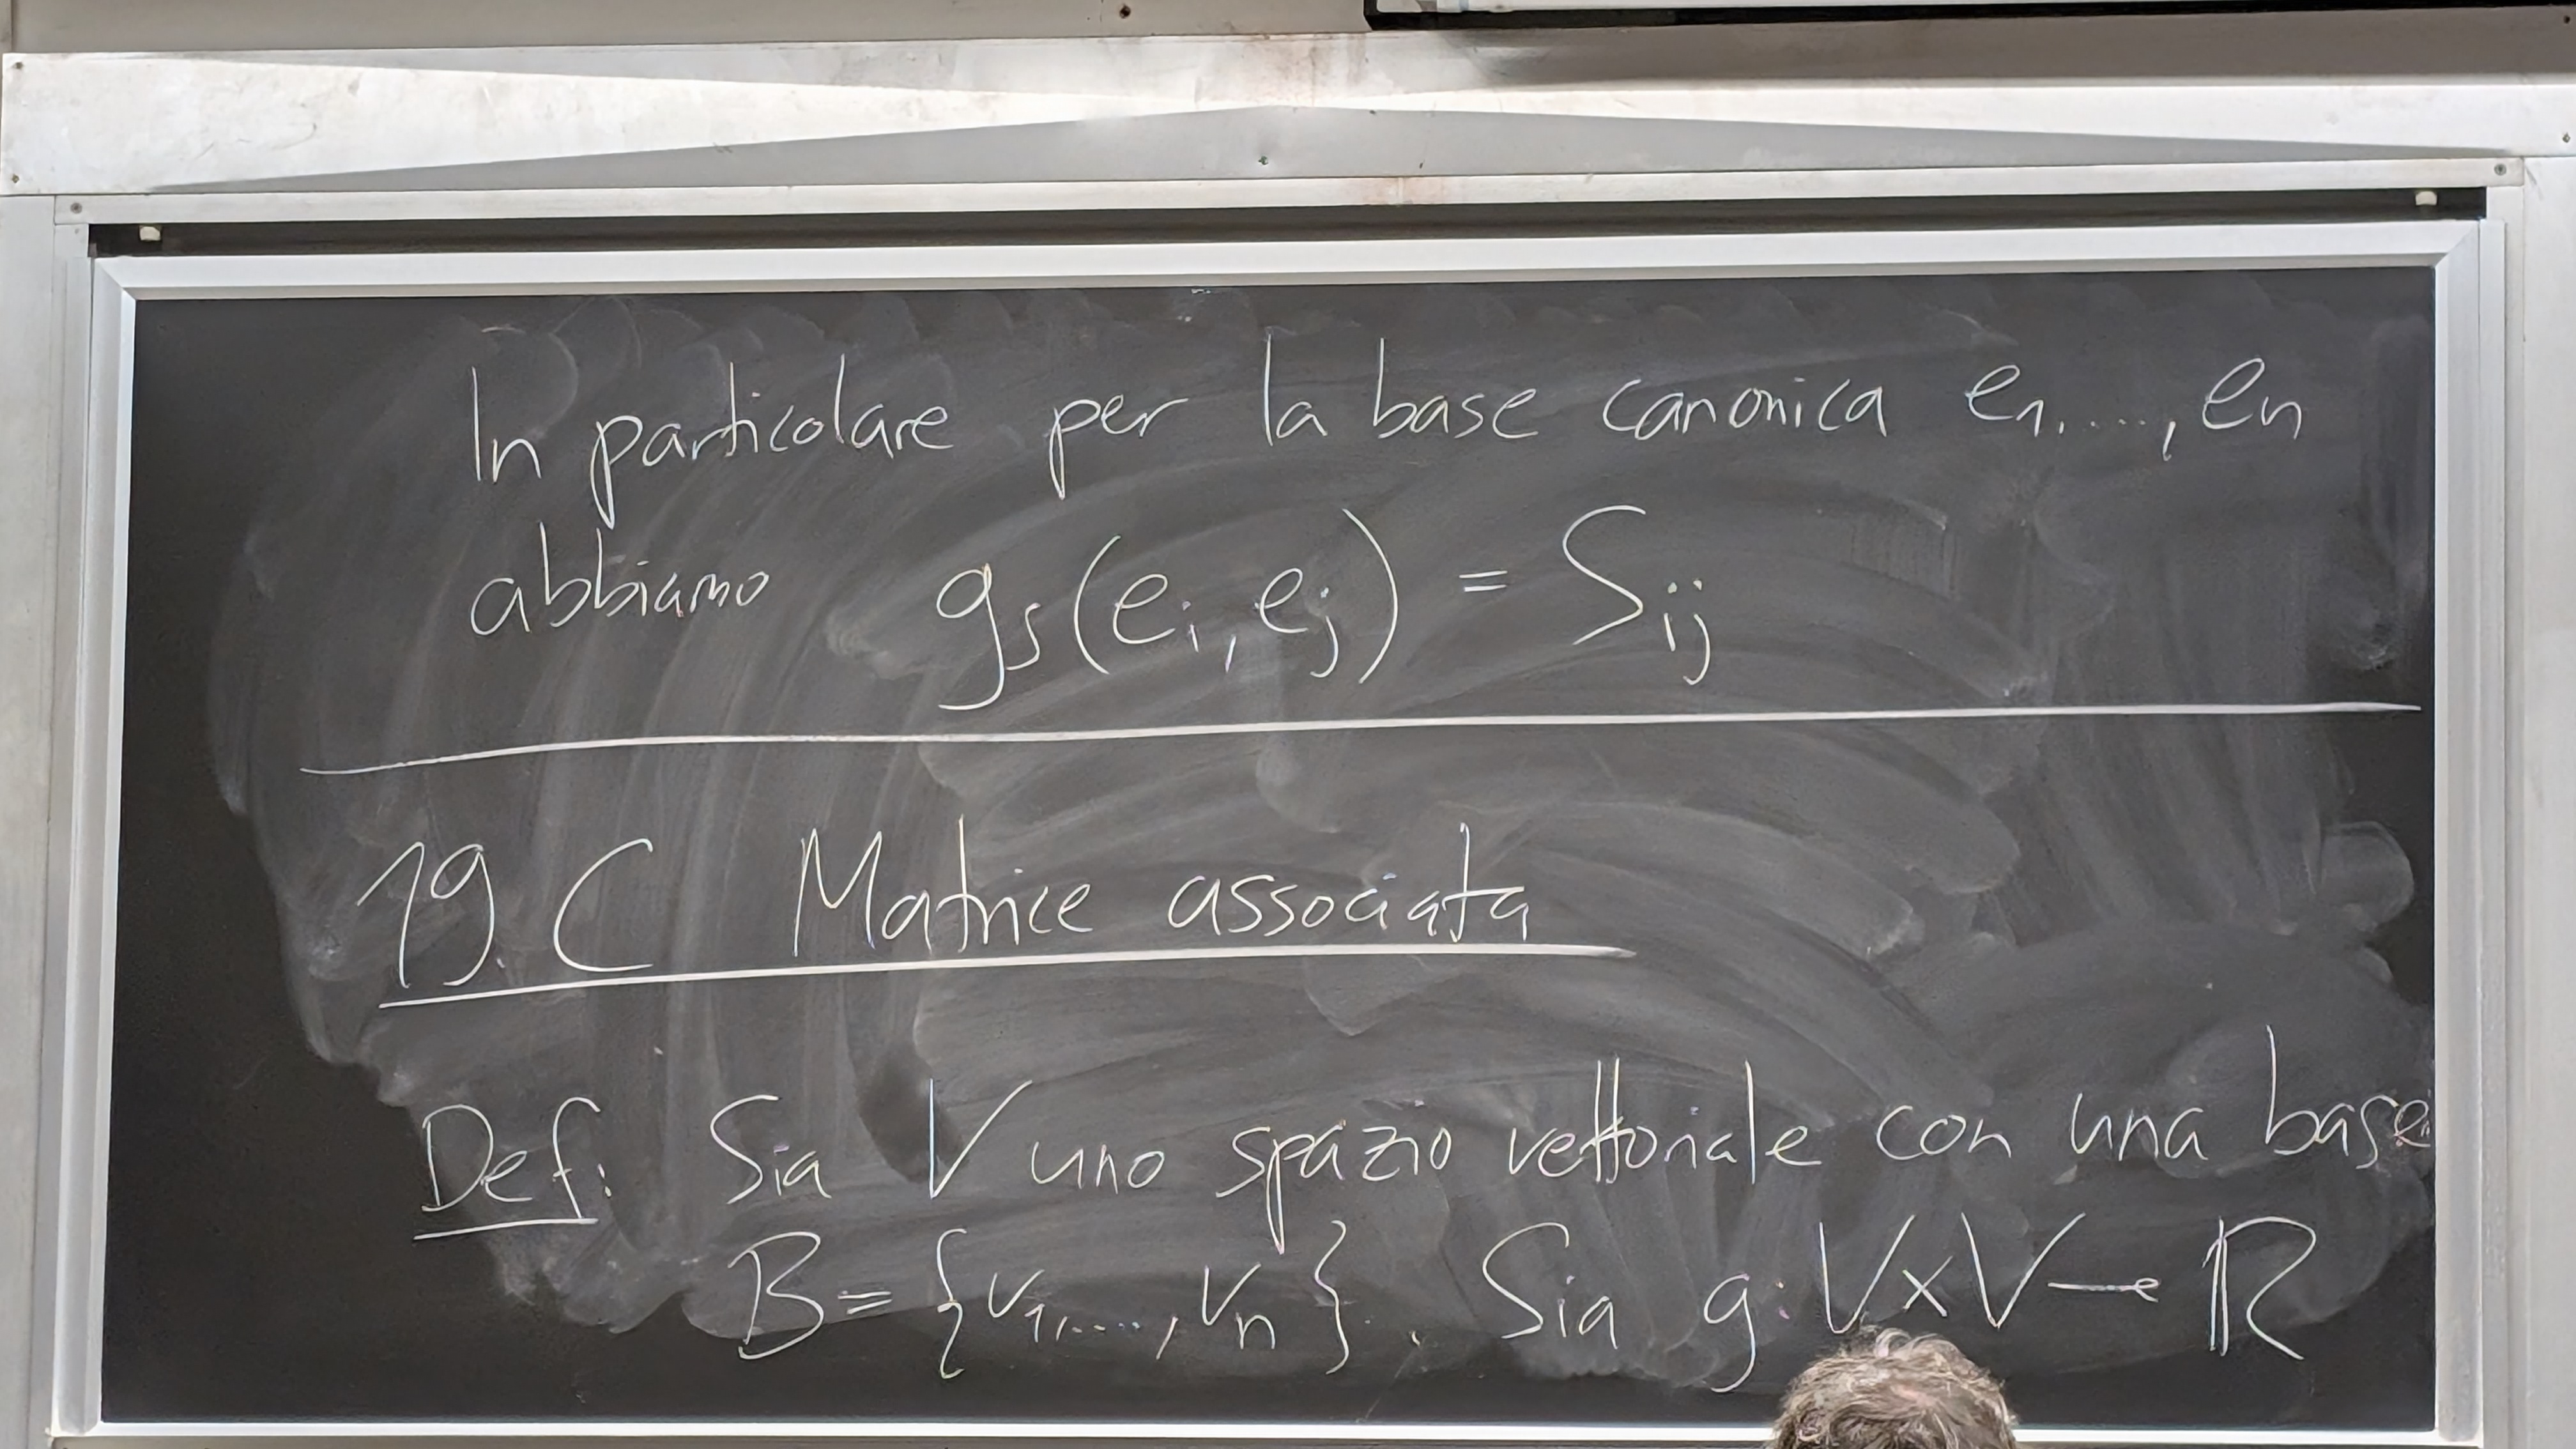 In particolare per la base canonica e₁,....,eₙ
abbiamo gₛ(eᵢ,eⱼ) = Sᵢⱼ
19.C Matrice associata
Def: Sia V uno spazio vettoriale con una base
B = {v₁,....,vₙ}. Sia g: V×V → ℝ